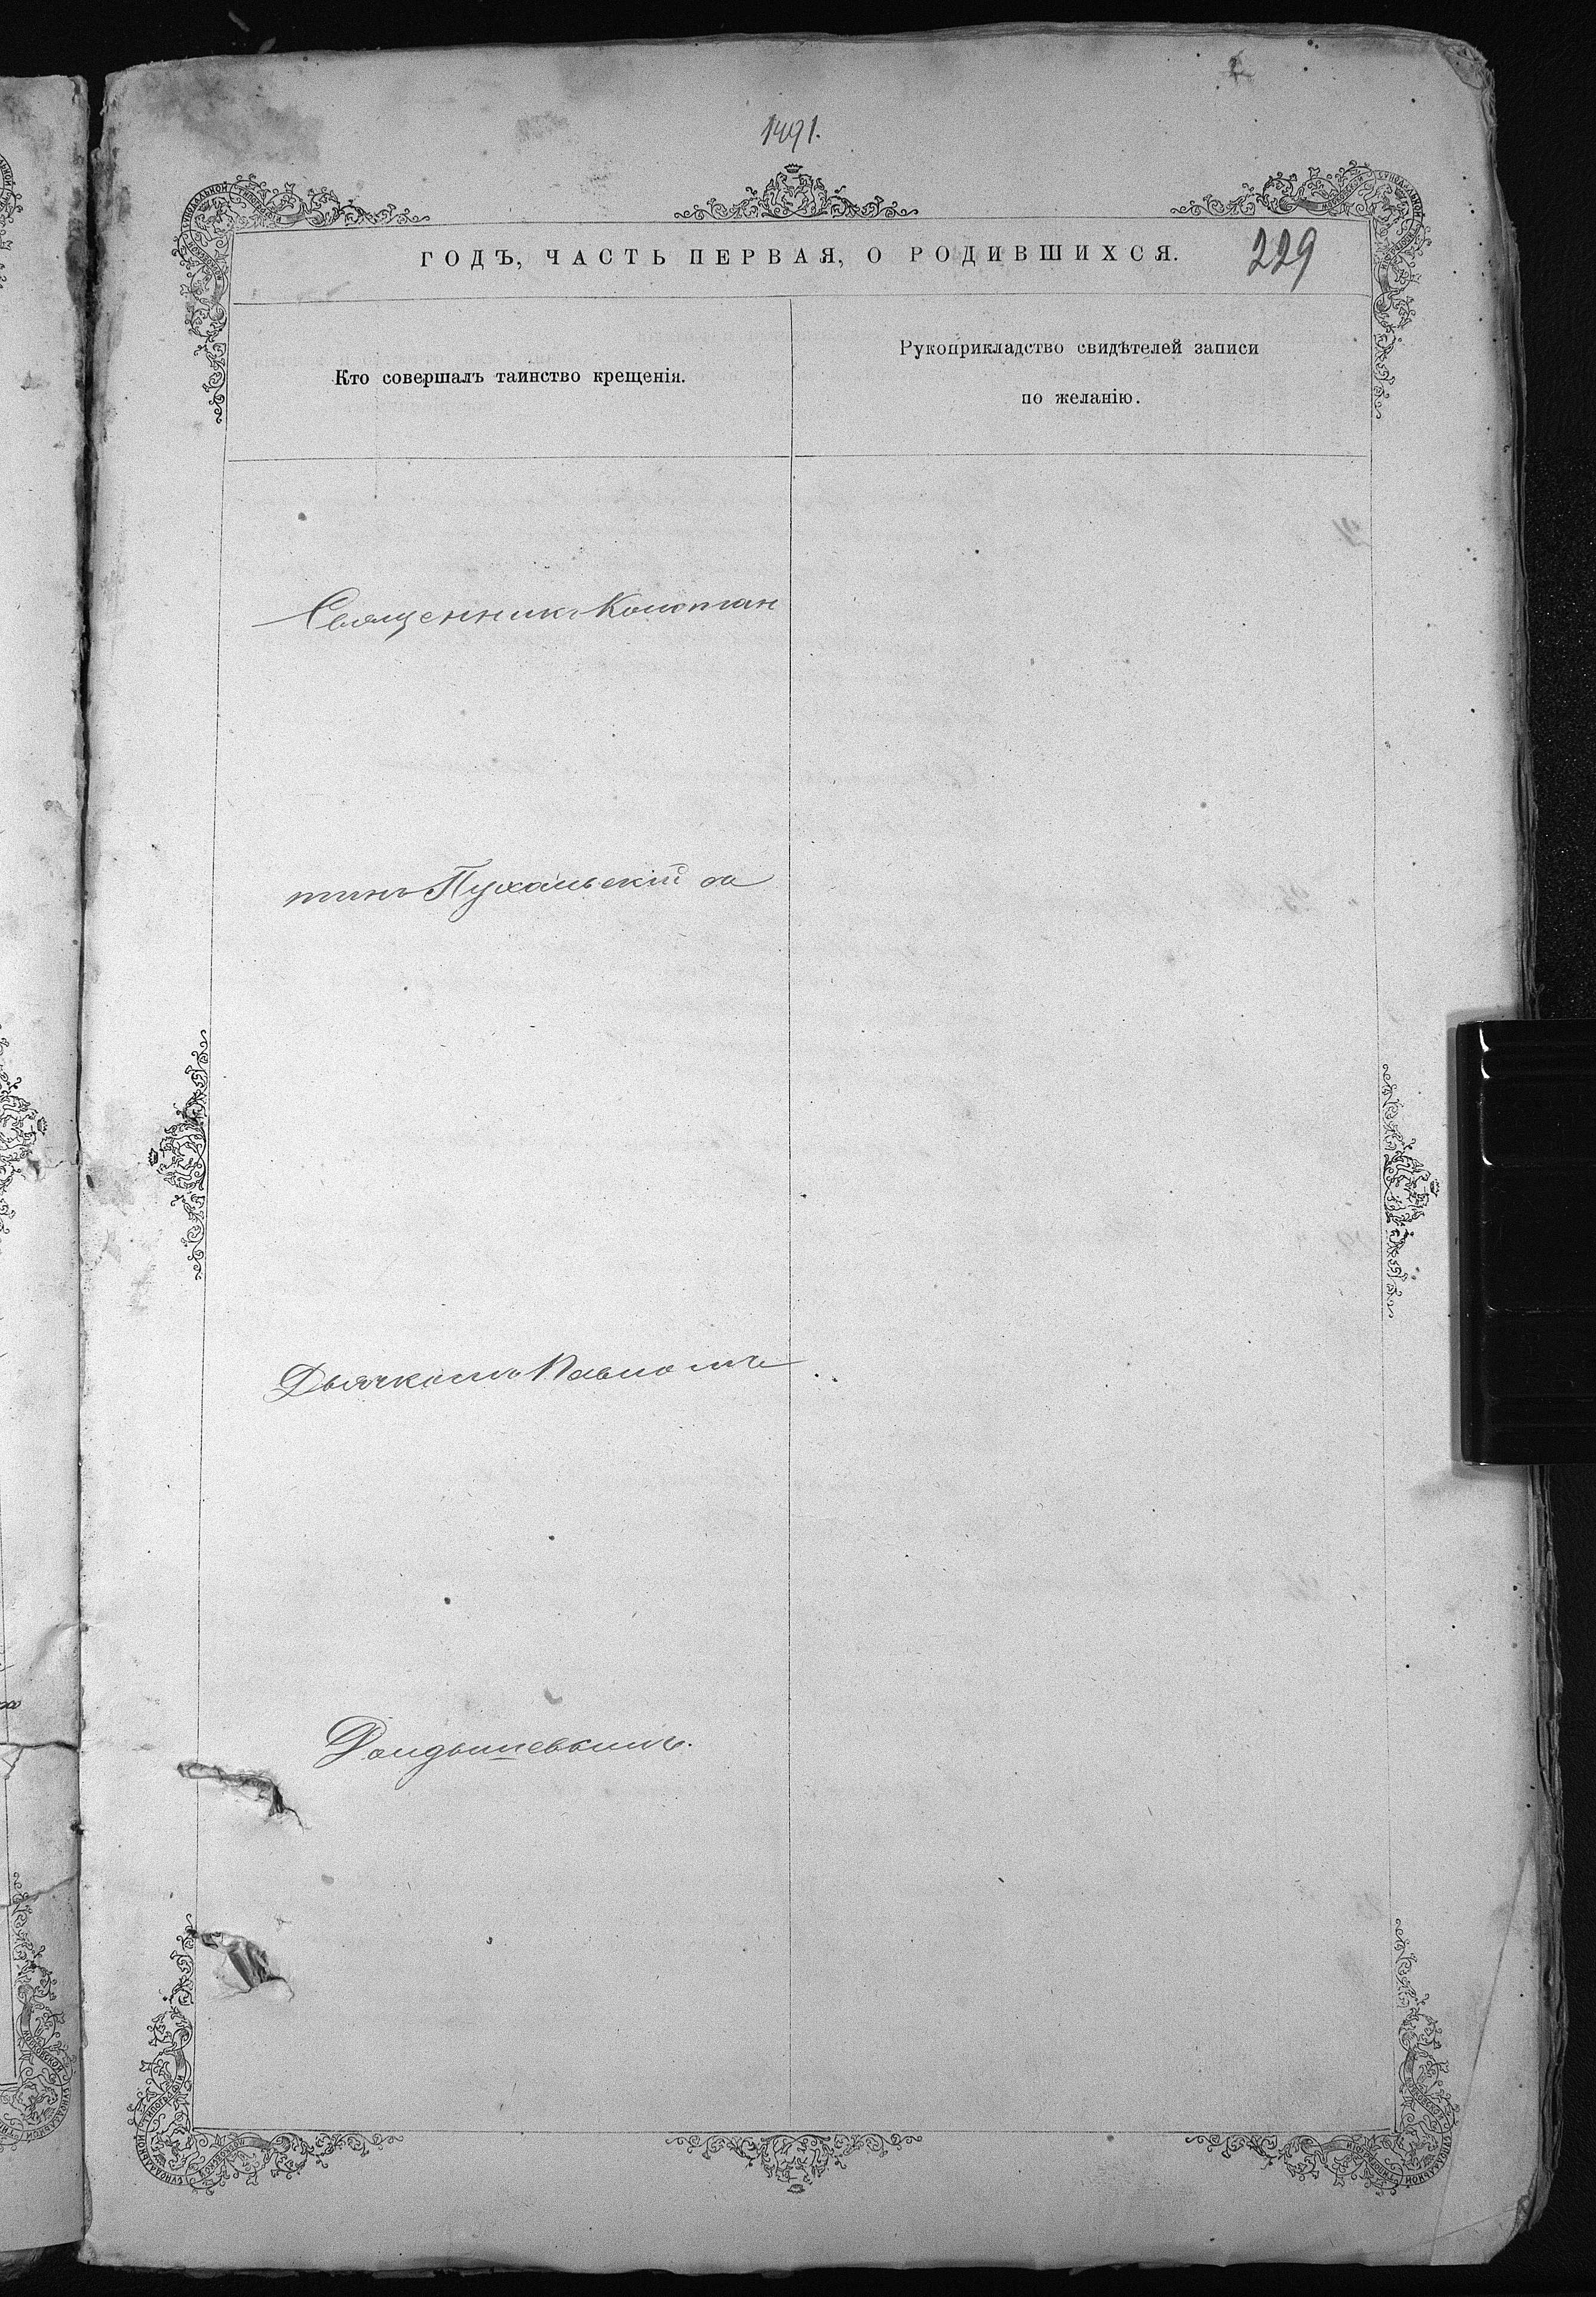 1491.
ГОДЪ, ЧАСТЬ ПЕРВАЯ, О РОДИВШИХСЯ.
229
Кто совершалъ таинство крещенія.
Рукоприкладство свидѣтелей записи
по желанію.
Священникъ Констан
тинъ Пухальскій съ
Дьячкомъ Павломъ